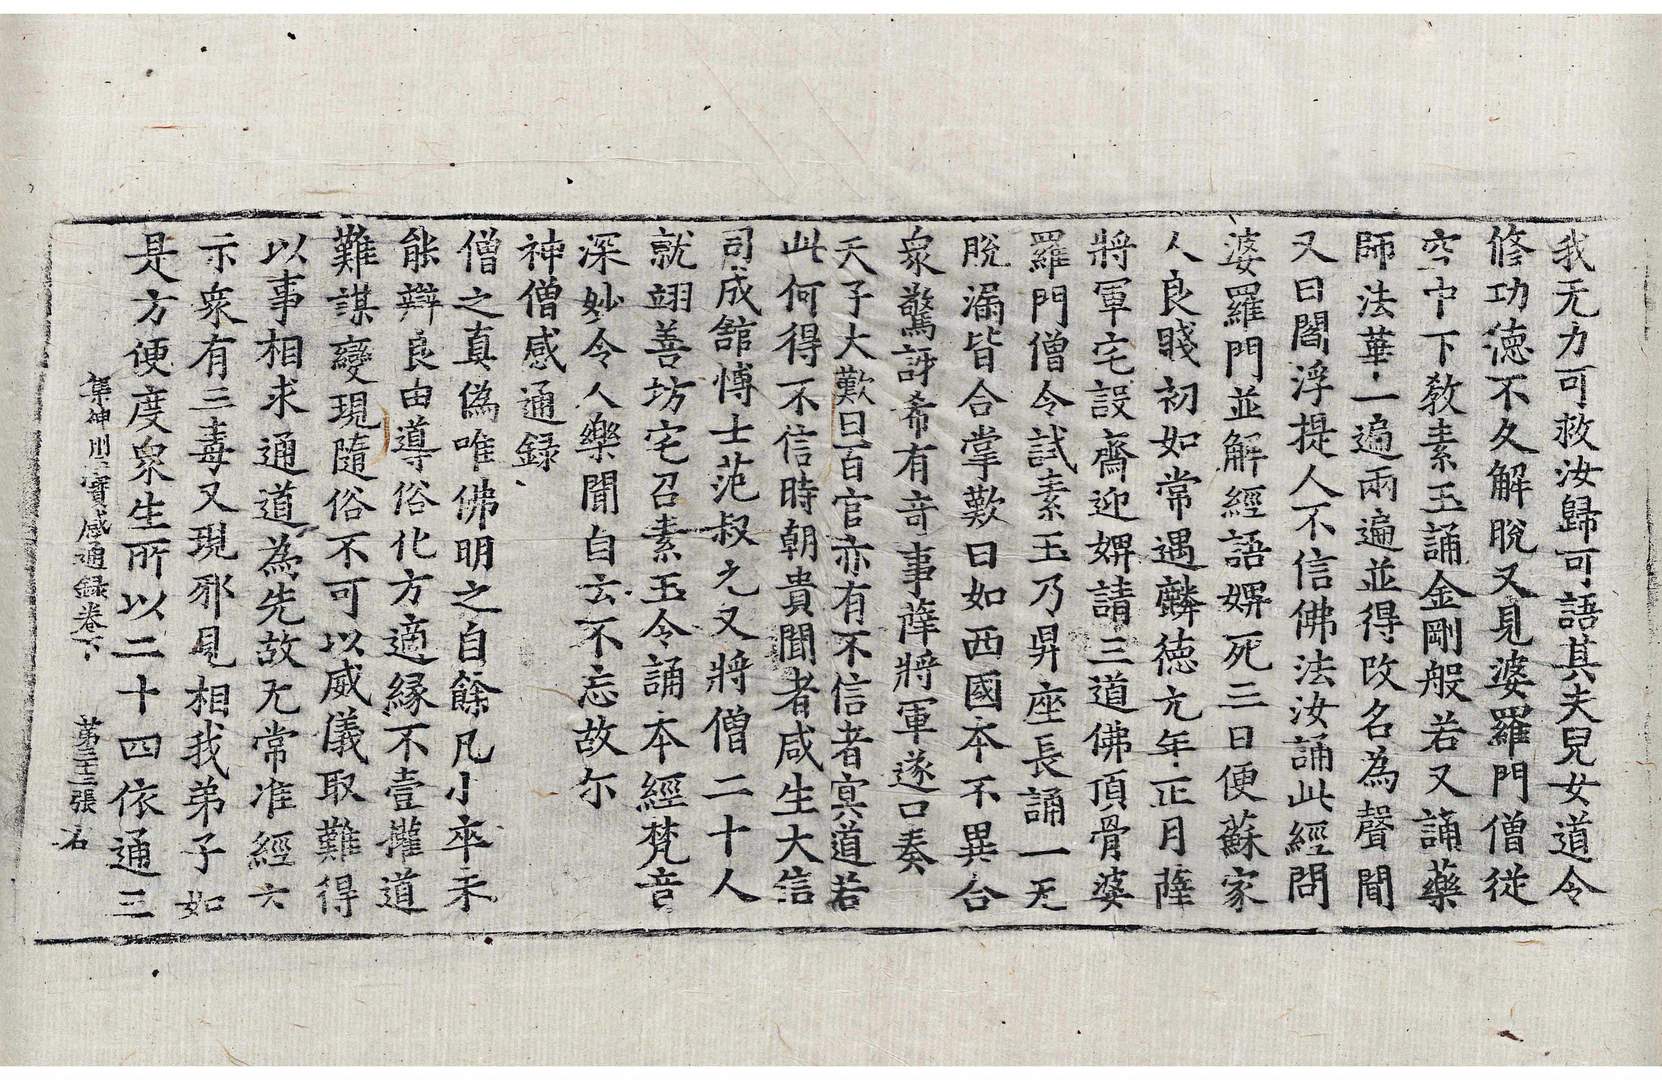 我无力可救汝歸可語其夫兒女道令
修功德不久解脫又見婆羅門僧從
空中下教素玉誦金剛般若又誦藥
師法華一遍兩遍並得改名為聲聞
又曰閻浮提人不信佛法汝誦此經問
婆羅門並解經語婢死三日便蘇家
人良賤初如常遇麟德亢年正月薩
將軍宅設齋迎婢請三道佛頂骨婆
羅門僧令試素玉乃昇座長誦一无
脫漏皆合掌歎曰如西國本不異合
衆驚訝希有奇事薛將軍遂口奏
天子大歎曰百官亦有不信者冥道若
此何得不信時朝貴聞者咸生大信
司成舘愽士范叔亢又將僧二十人
就翊善坊宅召素玉令誦本經梵音
深妙令人樂聞自云不忘故尔
神僧感通録
僧之真偽唯佛明之自餘凡小卒未
能辯良由導俗化方適縁不壹攉道
難謀變現隨俗不可以威儀取難得
以事相求通道為先故无常准經六
示衆有三毒又現邪見相我弟子如
是方便度衆生所以二十四依通三
集神州三寳感通録卷下 第三十三張 右